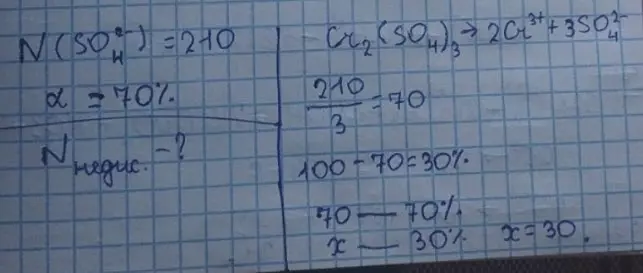 N(SO₄²⁻) = 210
α = 70%.
Nнедис. - ?
Cr₂(SO₄)₃ → 2Cr³⁺ + 3SO₄²⁻
210/3 = 70
100 - 70 = 30%.
70 — 70%.
x — 30% x = 30.